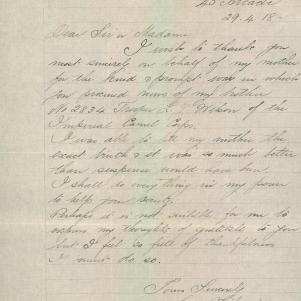 40 Arcadia
29.4.18.
Dear Sir or Madame,
I wish to thank you
most sincerely on behalf of my mother
for the kind & prompt was in which
you procured news of my brother
No 2834 Trooper L. Wilson of the
Imperial Camel Corps.
I was able to tell my mother the
exact truth & it was so much better
than suspense would have been.
I shall do everything in my power
to help your society.
Perhaps it is not suitable for me to
express my thoughts of gratitude to you
but I feel so full of thankfulness
I must do so.
Yours Sincerely